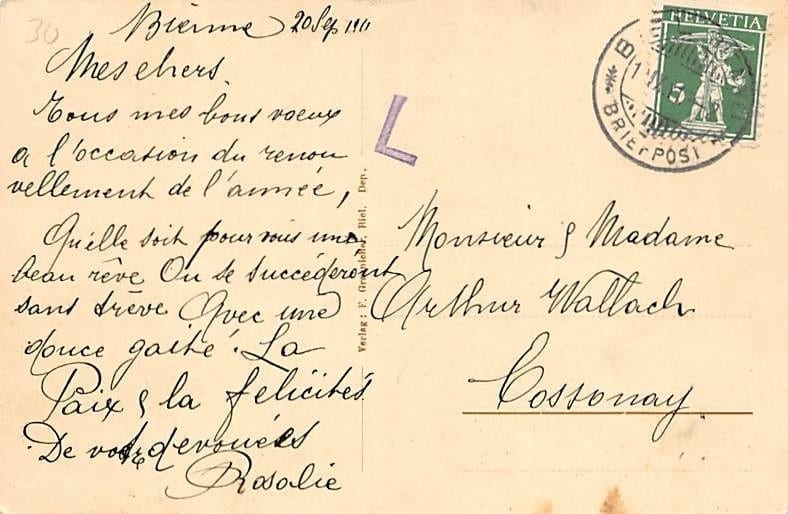 30
Bienne 20 Sep 1911
Mes chers.
Tous mes bons voeux
a l'occasion du renou
vellement de l'année,
Qu'elle soit pour vous une
beau rêve Ou se succéderont
sans trève Avec une
douce gaité. La
Paix & la félicités
De votre devouées
Rosalie
Verlag: F. Biel. Dep.
L
HELVETIA
BRIEFPOST
Monsieur & Madame
Arthur Wallach
Cossonay